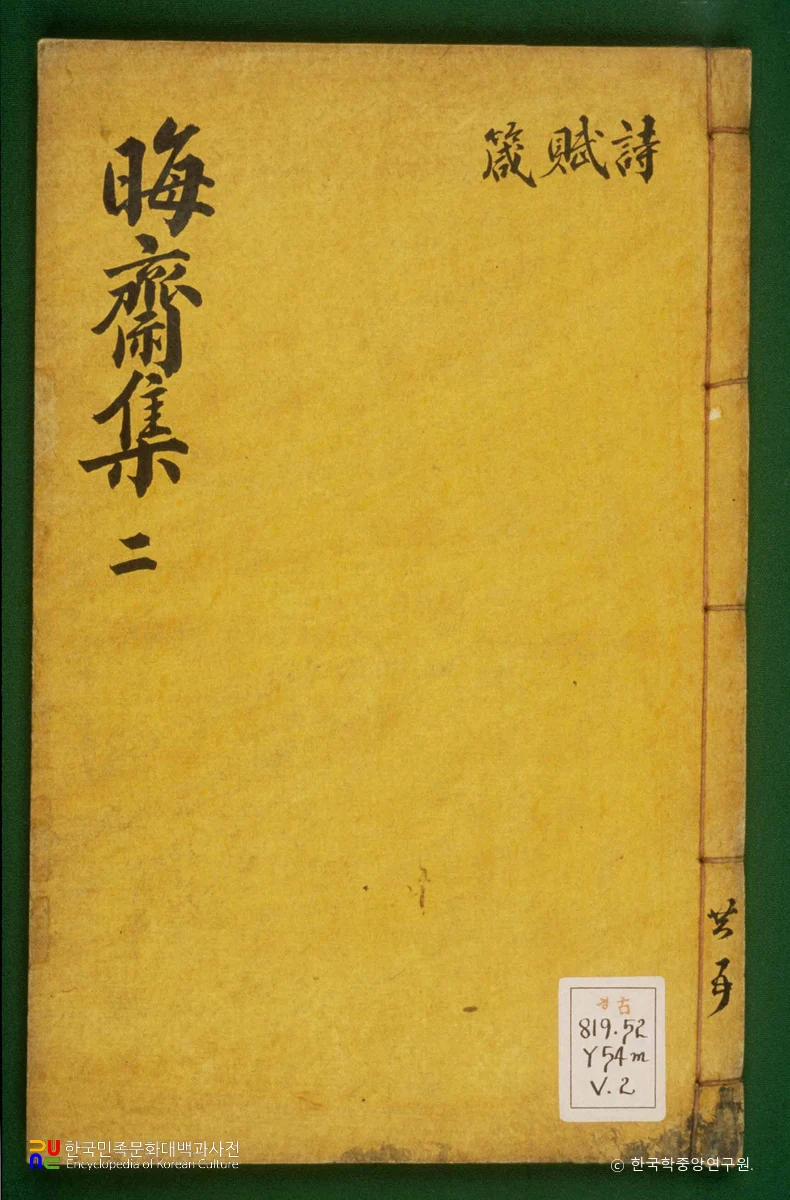 詩 賦 箴
晦齋集 二
共五
古
819.52
Y54m
V.2
한국민족문화대백과사전
Encyclopedia of Korean Culture
© 한국학중앙연구원.